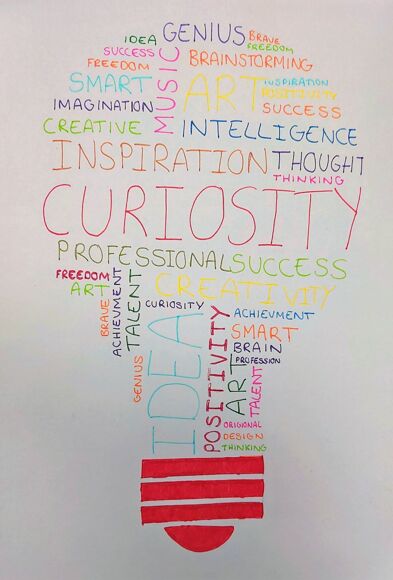 IDEA GENIUS BRAVE
FREEDOM
SUCCESS
FREEDOM
MUSIC
BRAINSTORMING
SMART
ART
INSPIRATION
POSITIVITY
IMAGINATION
SUCCESS
CREATIVE
INTELLIGENCE
INSPIRATION THOUGHT
THINKING
CURIOSITY
PROFESSIONAL SUCCESS
FREEDOM
ART
CREATIVITY
BRAVE
ACHIEVMENT
TALENT
CURIOSITY
GENIUS
IDEA
POSITIVITY
ACHIEVMENT
SMART
BRAIN
PROFESSION
ART
TALENT
ORIGIONAL
DESIGN
THINKING